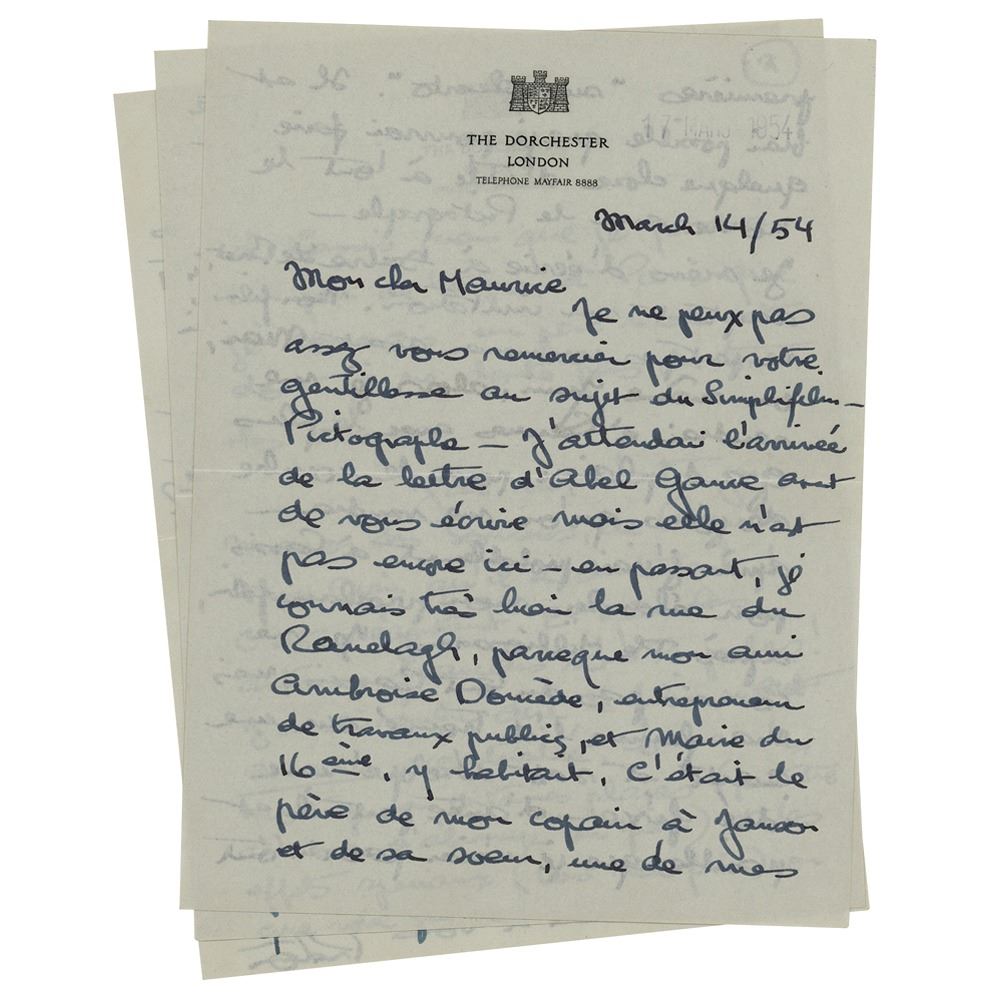 THE DORCHESTER
LONDON
TELEPHONE MAYFAIR 8888
17 MARS 1954
March 14/54
Mon cher Maurice
Je ne peux pas
assez vous remercier pour votre
gentillesse au sujet du Simplifilm-
Pictographe – J'attendai l'arrivée
de la lettre d'Abel Gance avant
de vous écrire mais elle n'est
pas encore ici – en passant, je
connais très bien la rue du
Ranelagh, parceque mon ami
Ambroise Domède, entrepreneur
de travaux publics, et Maire du
16ème, y habitait, C'était le
père de mon copain à Janson
et de sa soeur, une de mes